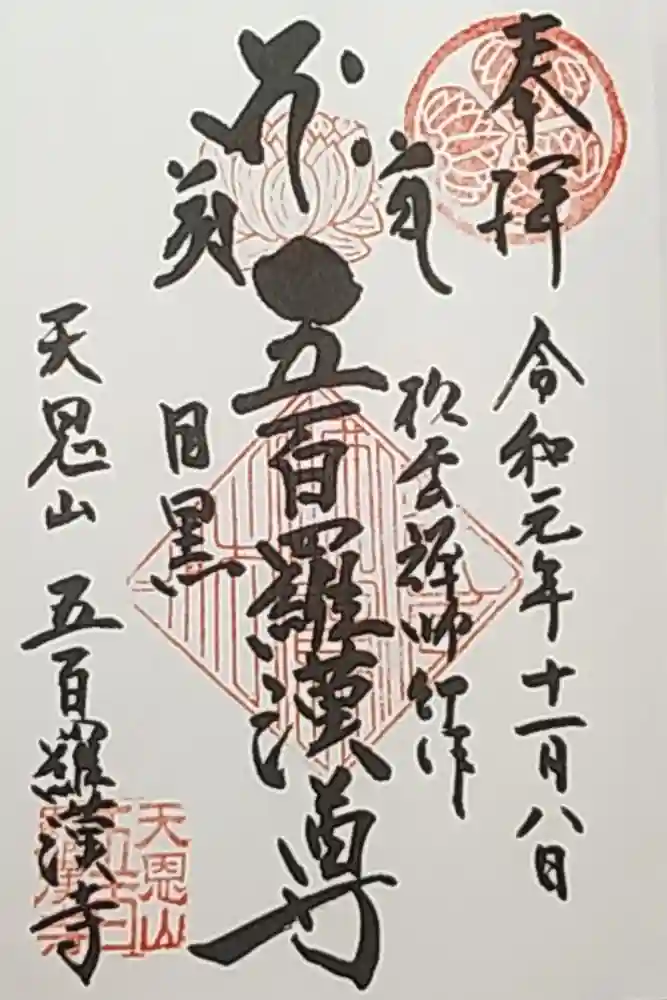 奉拝
令和元年十一月八日
松雲禅師御作
五百羅漢尊
目黒
天恩山 五百羅漢寺
天恩山
五百
羅漢寺